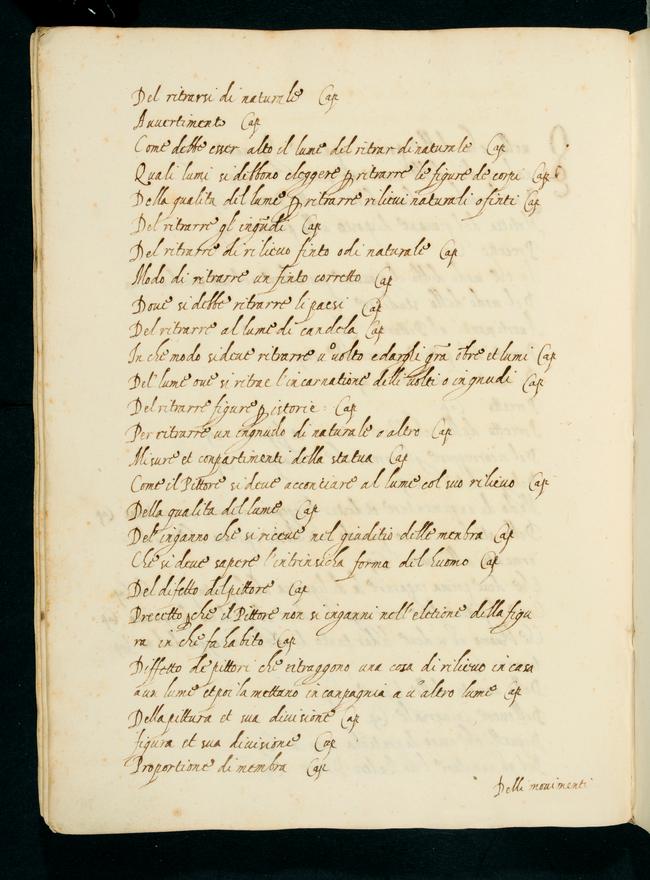 Del ritrarsi di naturale Cap
Avvertimento Cap
Come debbe esser alto el lume del ritrar di naturale Cap
Quali lumi si debbono eleggere p ritrarre le figure de corpi Cap
Della qualita del lume p ritrarre rilievi naturali o finti Cap
Del ritrarre gl ingnudi Cap
Del ritrarre di rilievo finto o di naturale Cap
Modo di ritrarre un finto corretto Cap
Dove si debbe ritrarre li paesi Cap
Del ritrarre al lume di candela Cap
In che modo si deve ritrarre uº volto e dargli gra õbre et lumi Cap
Del lume ove si ritrae l'incarnatione delli volti o ingnudi Cap
Del ritrarre figure p istorie Cap
Per ritrarre un ingnudo di naturale o altro Cap
Misure et conpartimenti della statua Cap
Come il Pittore si deve accontiare al lume col suo rilievo Cap
Della qualita del lume Cap
Del' inganno che si riceve nel giuditio delle menbra Cap
Che si deve sapere l'intrinsicha forma del huomo Cap
Del difetto del pittore Cap
Precetto che il Pittore non si inganni nell'eletione della figu
ra in che fa habito Cap
Diffetto de pittori che ritraggono una cosa di rilievo in casa
a un lume et poi la mettano in canpagnia a uº altro lume Cap
Della pittura et sua divisione Cap
figura et sua divisione Cap
Proportione di membra Cap
Delli movimenti